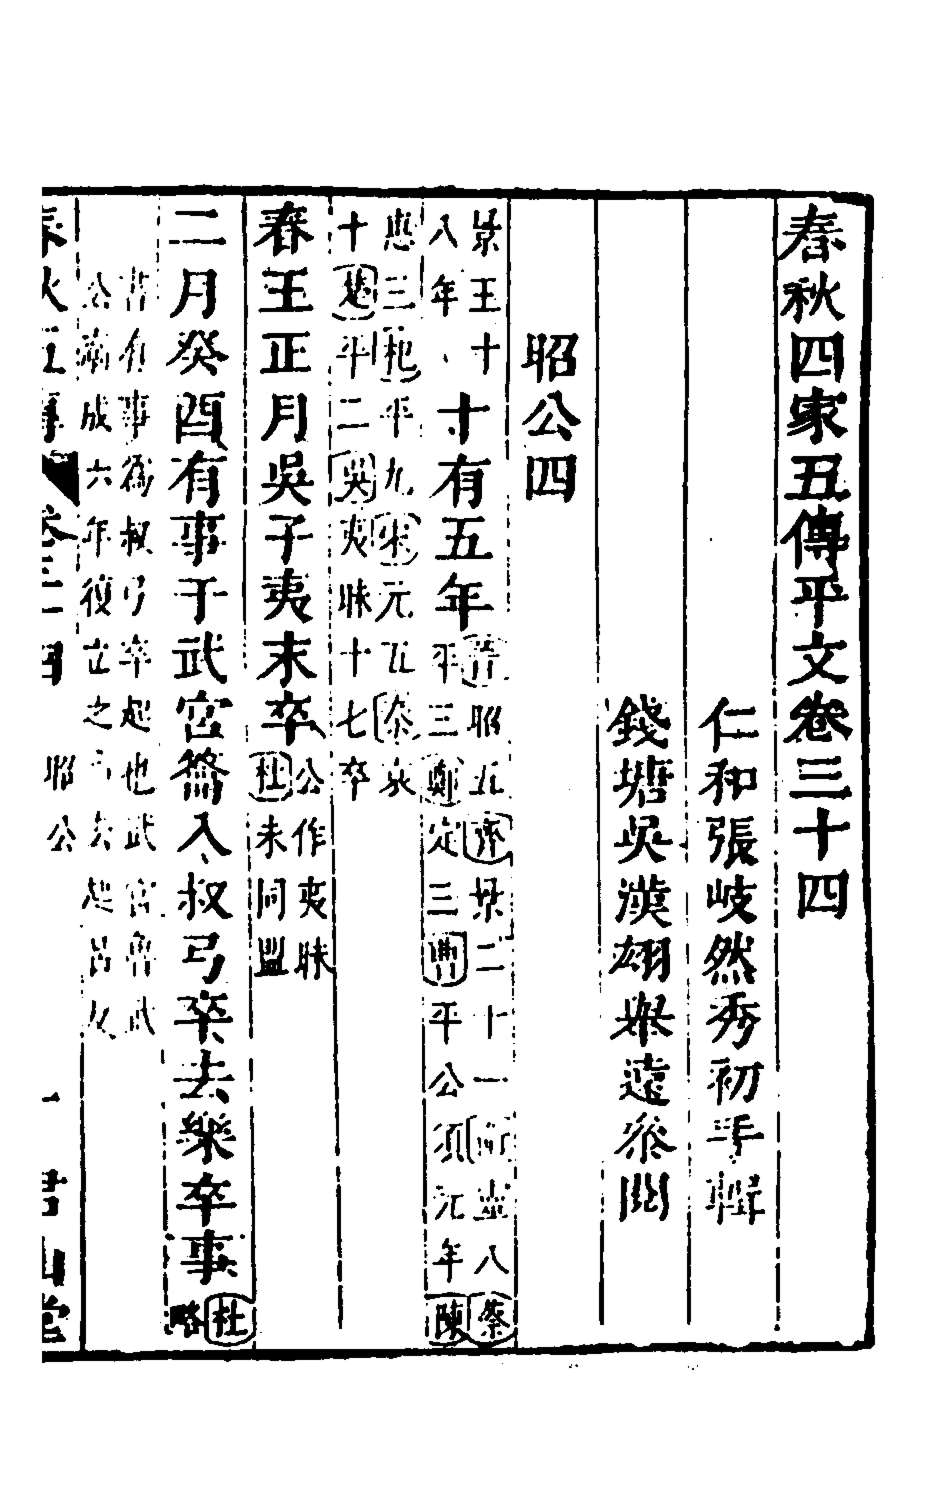 春秋四家五傳平文卷三十四
仁和張岐然秀初手輯
錢塘吳漢翊舉遠參閱
昭公四
景王十
八年
十有五年
莒昭五齊景二十一衞靈八蔡
平三鄭定三曹平公須元年陳
惠三杞平九宋元五秦哀
十楚平二吳夷昧十七卒
春王正月吳子夷末卒
公作夷昧
杜未同盟
二月癸酉有事于武宮籥入叔弓卒去樂卒事
杜
略
書有事為叔弓卒起也武宮魯武
公廟成六年復立之
春秋五傳 卷三十四 昭公 一 君山堂